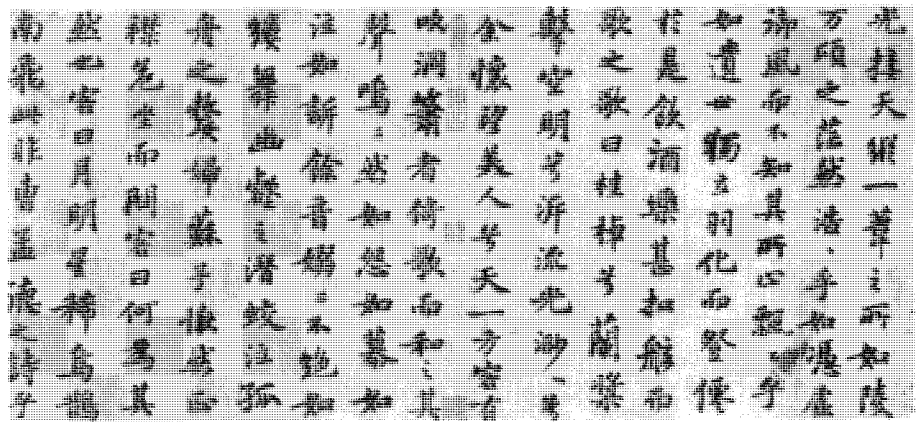 光接天縱一葦之所如陵
万頃之茫然浩〻乎如憑虛
御風而不知其所止飄〻乎
如遺世獨立羽化而登僊
於是飲酒樂甚扣舷而
歌之歌曰桂棹兮蘭槳
擊空明兮泝流光渺〻兮
余懷望美人兮天一方客有
吹洞簫者倚歌而和之其
聲嗚〻然如怨如慕如
泣如訴餘音嫋〻不絕如
縷舞幽壑之潛蛟泣孤
舟之嫠婦蘇子愀然正
襟危坐而問客曰何為其
然也客曰月明星稀烏鵲
南飛此非曹孟德之詩乎